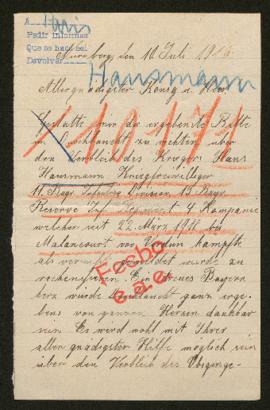 A Paris
Pedir informes
Que se hace sei
Devolver
Nürnberg, den 10 Juli 1916.
Hausmann
Allergnädigster König u. Herr
Gestatte mir die ergebenste Bitte
an zu richten über
den Verbleib des Kriegers Hans
Hausmann Kriegsfreiwilliger
11. Bayr. Infanterie Division 13 Bayr.
Reserve Inf. Regiment 4 Kompanie
welcher seit 22. März 1916 bei
Malancourt vor Verdun kämpfte
als vermißt gemeldet wurde zu
Ein treues Bayern
herz wurde ganz erge
bens von ganzen Herzen dankbar
sein Es werd wohl mit Ihrer
aller gnädigster Hilfe möglich sein
über den Verbleib des Obigenge-
X 10171
Fecho
e.a.e.